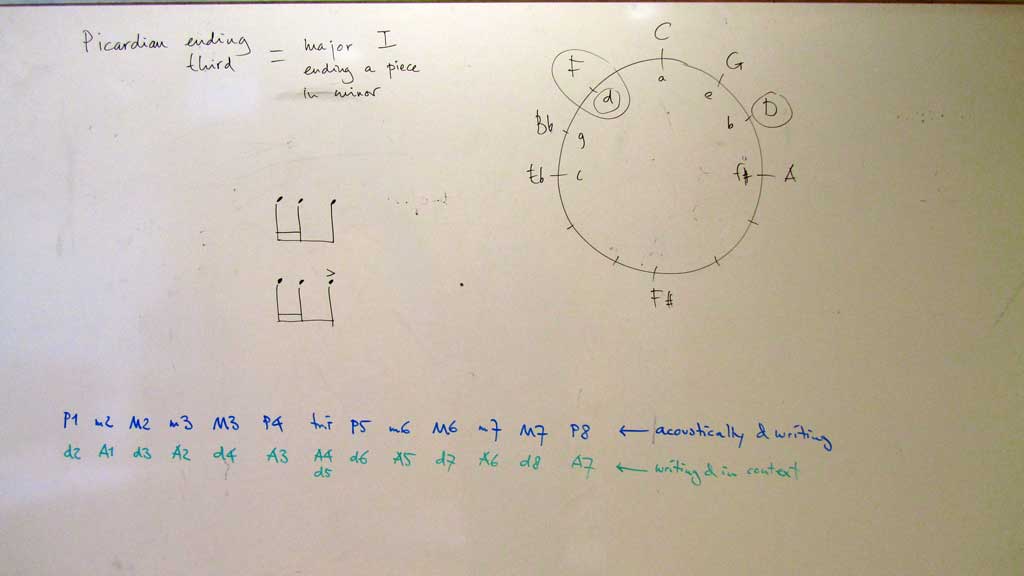 Picardian ending
third
= major I
ending a piece
in minor
C
G
D
A
F#
Eb
Bb
F
a
e
b
f#
c
g
d
>
P1 m2 M2 m3 M3 P4 trit P5 m6 M6 m7 M7 P8 ← acoustically & writing
d2 A1 d3 A2 d4 A3 A4 d6 A5 d7 A6 d8 A7 ← writing & in context
d5